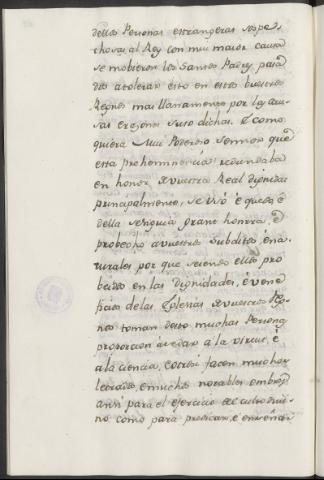 dellos Personas estrangeras sospe-
chosas al Rey con mui maior causa
se mobieron los Santos Padres para
dar a tolerar esto en estos vuestros
Regnos mas llanamente por las cau-
sas e razones suso dichas. E como
quiera Mui Poderoso Sennor que
esta preheminencia redundaba
en honor de vuestra Real dignidad
principalmente, se vió é queda, é
della seguia grant honrra é
probecho a vuestros subditos é na-
turales por que seiendo ellos pro
beidos en las dignidades, é vene
ficios de las Iglesias de vuestros Reg-
nos toman desto muchas Personas
proporcion a redar á la virtud, é
á la ciencia, é oresi facen muchos
letrados, é muchos notables ombres
ansi para el ejercicio del culto divi-
no como para predicar, é ensennar